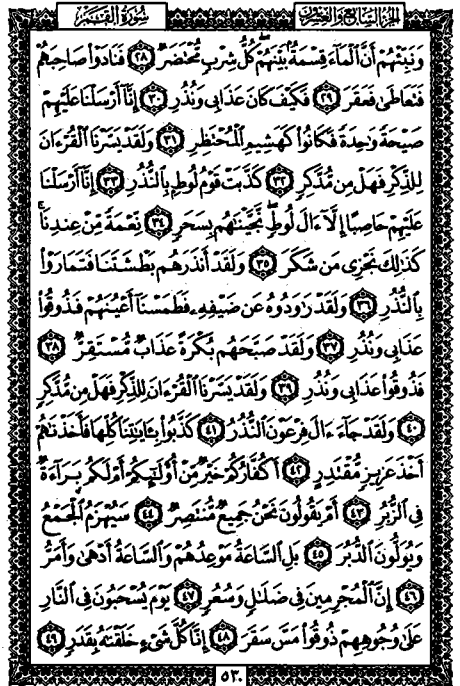 الجزء السابع والعشرون سورة القمر
وَنَبِّئْهُمْ أَنَّ ٱلْمَآءَ قِسْمَةٌۢ بَيْنَهُمْ ۖ كُلُّ شِرْبٍ مُّحْتَضَرٌ ٢٨ فَنَادَوْا۟ صَاحِبَهُمْ
فَتَعَاطَىٰ فَعَقَرَ ٢٩ فَكَيْفَ كَانَ عَذَابِى وَنُذُرِ ٣٠ إِنَّآ أَرْسَلْنَا عَلَيْهِمْ
صَيْحَةً وَٰحِدَةً فَكَانُوا۟ كَهَشِيمِ ٱلْمُحْتَظِرِ ٣١ وَلَقَدْ يَسَّرْنَا ٱلْقُرْءَانَ
لِلذِّكْرِ فَهَلْ مِن مُّدَّكِرٍ ٣٢ كَذَّبَتْ قَوْمُ لُوطٍۭ بِٱلنُّذُرِ ٣٣ إِنَّآ أَرْسَلْنَا
عَلَيْهِمْ حَاصِبًا إِلَّآ ءَالَ لُوطٍ ۖ نَّجَّيْنَٰهُم بِسَحَرٍ ٣٤ نِّعْمَةً مِّنْ عِندِنَا ۚ
كَذَٰلِكَ نَجْزِى مَن شَكَرَ ٣٥ وَلَقَدْ أَنذَرَهُم بَطْشَتَنَا فَتَمَارَوْا۟
بِٱلنُّذُرِ ٣٦ وَلَقَدْ رَٰوَدُوهُ عَن ضَيْفِهِۦ فَطَمَسْنَآ أَعْيُنَهُمْ فَذُوقُوا۟
عَذَابِى وَنُذُرِ ٣٧ وَلَقَدْ صَبَّحَهُم بُكْرَةً عَذَابٌ مُّسْتَقِرٌّ ٣٨
فَذُوقُوا۟ عَذَابِى وَنُذُرِ ٣٩ وَلَقَدْ يَسَّرْنَا ٱلْقُرْءَانَ لِلذِّكْرِ فَهَلْ مِن مُّدَّكِرٍ
٤٠ وَلَقَدْ جَآءَ ءَالَ فِرْعَوْنَ ٱلنُّذُرُ ٤١ كَذَّبُوا۟ بِـَٔايَٰتِنَا كُلِّهَا فَأَخَذْنَٰهُمْ
أَخْذَ عَزِيزٍ مُّقْتَدِرٍ ٤٢ أَكُفَّارُكُمْ خَيْرٌ مِّنْ أُو۟لَٰٓئِكُمْ أَمْ لَكُم بَرَآءَةٌ
فِى ٱلزُّبُرِ ٤٣ أَمْ يَقُولُونَ نَحْنُ جَمِيعٌ مُّنتَصِرٌ ٤٤ سَيُهْزَمُ ٱلْجَمْعُ
وَيُوَلُّونَ ٱلدُّبُرَ ٤٥ بَلِ ٱلسَّاعَةُ مَوْعِدُهُمْ وَٱلسَّاعَةُ أَدْهَىٰ وَأَمَرُّ
٤٦ إِنَّ ٱلْمُجْرِمِينَ فِى ضَلَٰلٍ وَسُعُرٍ ٤٧ يَوْمَ يُسْحَبُونَ فِى ٱلنَّارِ
عَلَىٰ وُجُوهِهِمْ ذُوقُوا۟ مَسَّ سَقَرَ ٤٨ إِنَّا كُلَّ شَىْءٍ خَلَقْنَٰهُ بِقَدَرٍ ٤٩
٥٣٠